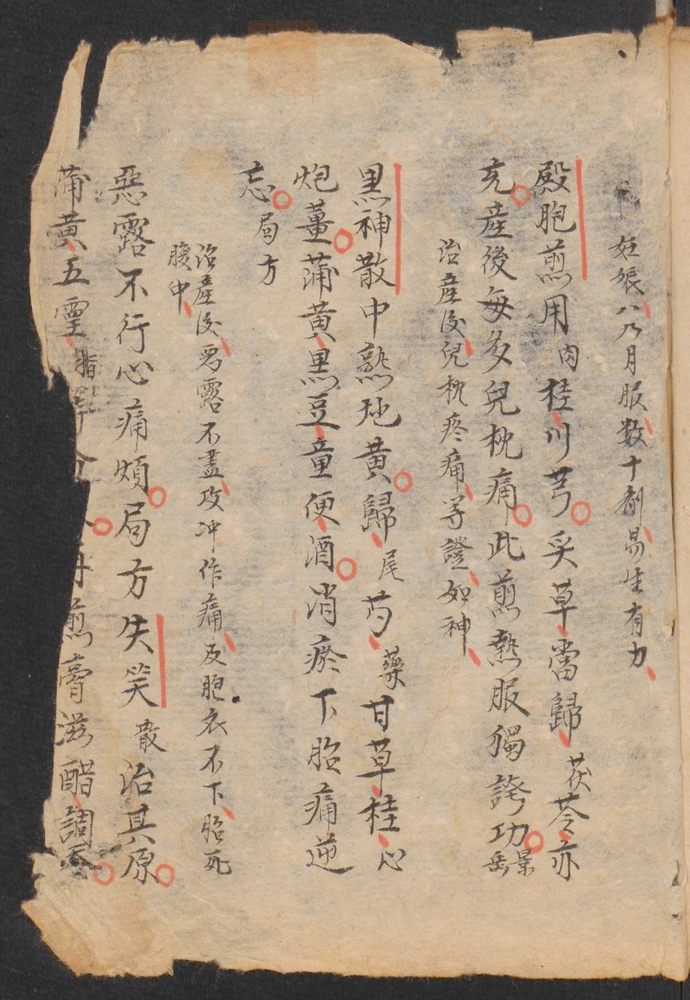 妊娠八九月服数十剤易生有力
殿胞煎用肉桂川芎炙草當歸茯苓亦
充產後每多兒枕痛此煎熟服獨誇功景岳
治產後兒枕疼痛等證如神
黑神散中熟地黃歸尾芍藥甘草桂心
炮薑蒲黃黑豆童便酒消瘀下胎痛逆
忘局方
治產後惡露不盡攻冲作痛及胞衣不下胎死
腹中
惡露不行心痛煩局方失笑散治其原
蒲黃五靈脂 煎膏滋醋調吞